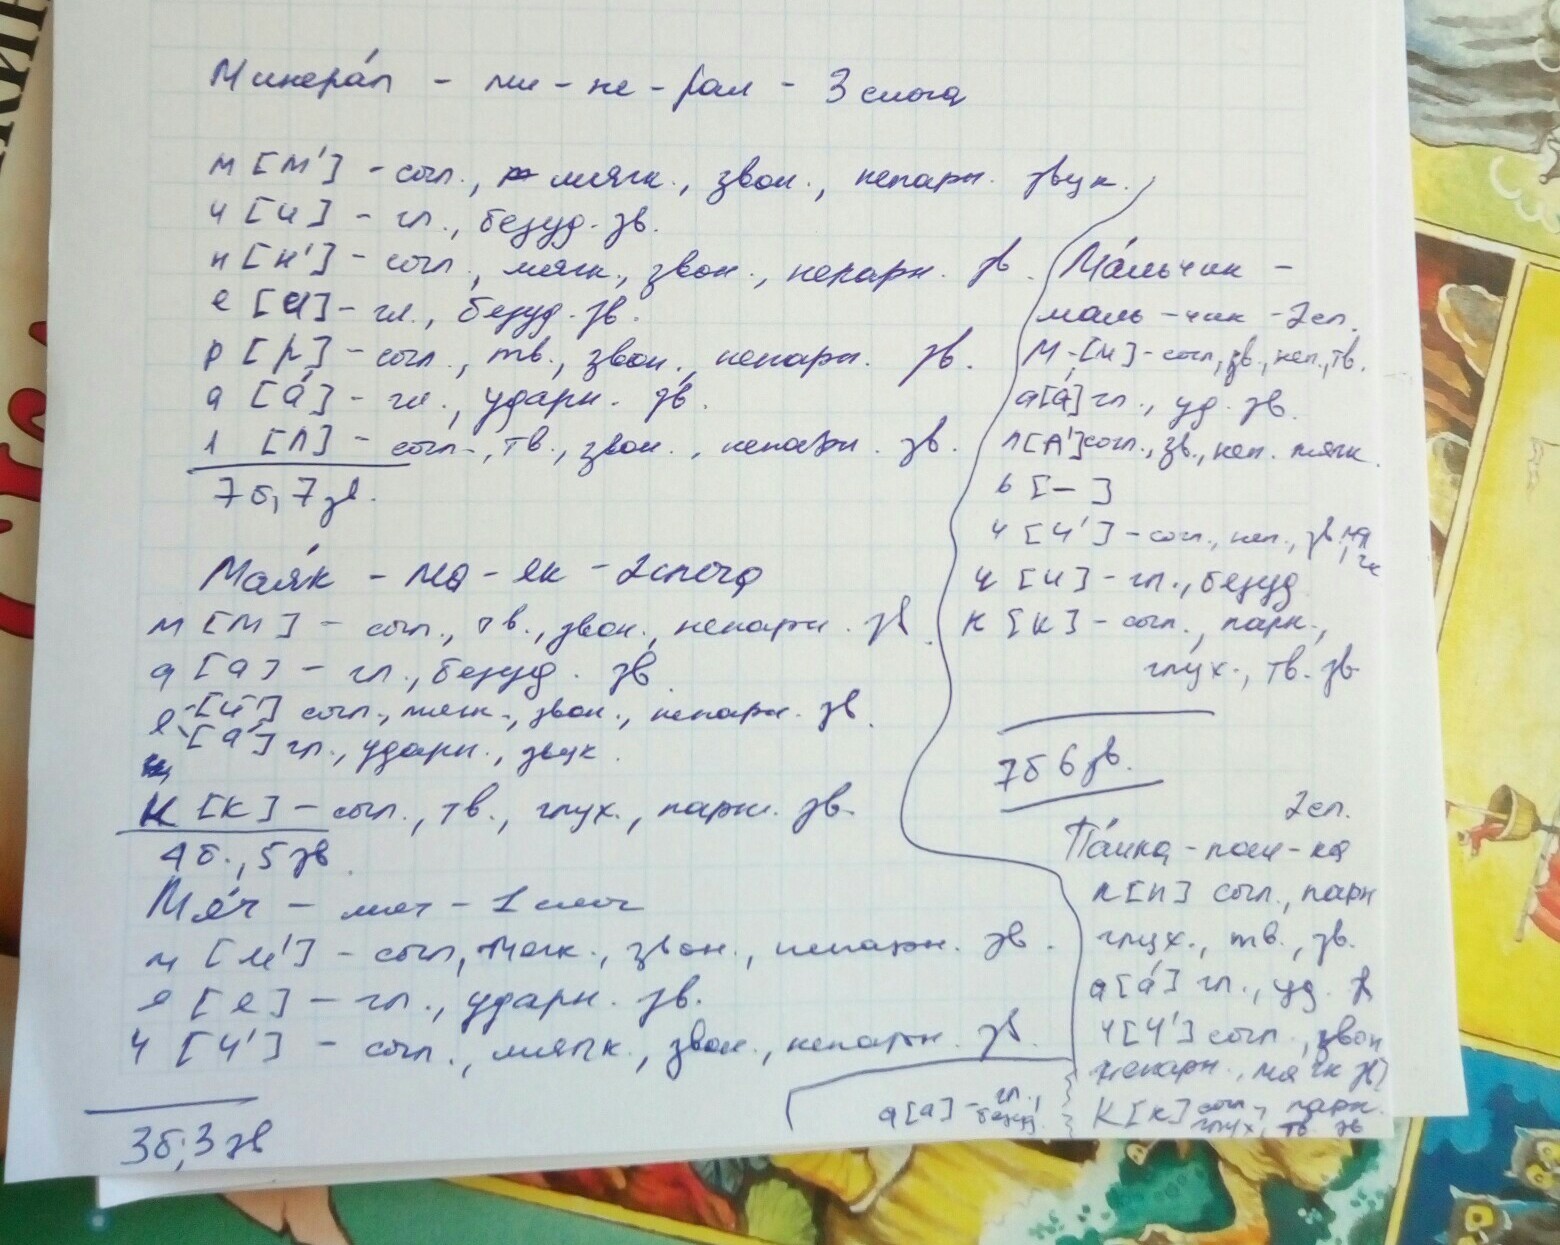 Минера́л - ми - не - рал - 3 слога
м [м'] - согл., мягк., звон., непарн. звук.
и [и] - гл., безуд. зв.
н [н'] - согл., мягк., звон., непарн. зв.
е [и] - гл., безуд. зв.
р [р] - согл., тв., звон., непарн. зв.
а [а́] - гл., ударн. зв.
л [л] - согл., тв., звон., непарн. зв.
7 б, 7 зв.
Мая́к - ма - як - 2 слога
м [м] - согл., тв., звон., непарн. зв.
а [а] - гл., безуд. зв.
я - [й'] согл., мягк., звон., непарн. зв.
- [а́] гл., ударн., звук.
к [к] - согл., тв., глух., парн. зв.
4 б., 5 зв.
Мя́ч - мяч - 1 слог
м [м'] - согл, мягк., звон., непарн. зв.
я [я] - гл., ударн. зв.
ч [ч'] - согл., мягк., звон., непарн. зв.
3 б, 3 зв
Ма́льчик -
маль - чик - 2 сл.
м - [м] - согл, зв., неп., тв.
а [а́] гл., уд. зв.
л [л'] согл., зв., неп. мягк.
ь [-]
ч [ч'] - согл., неп., зв. мягк
и [и] - гл., безуд
к [к] - согл., парн.,
глух., тв. зв
7 б 6 зв.
2 сл.
По́йка - пой - ка
п [п] согл., парн
глух., тв., зв.
а [а́] гл., уд. з
ч [ч'] согл., звон
непарн., мягк зв
к [к] согл., парн.
глух, тв. зв
а [а] - гл.,
безуд.